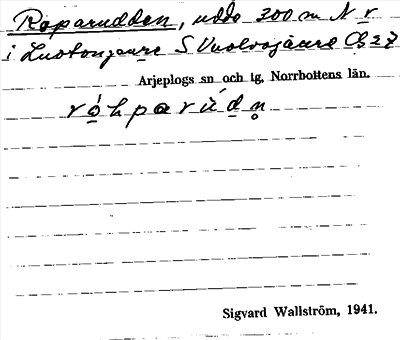 Roparudden, udde 300 m N r
i Luotonjaure S Vuolvojaure Cb 27
Arjeplogs sn och tg, Norrbottens län.
ròhparùdn̥
Sigvard Wallström, 1941.